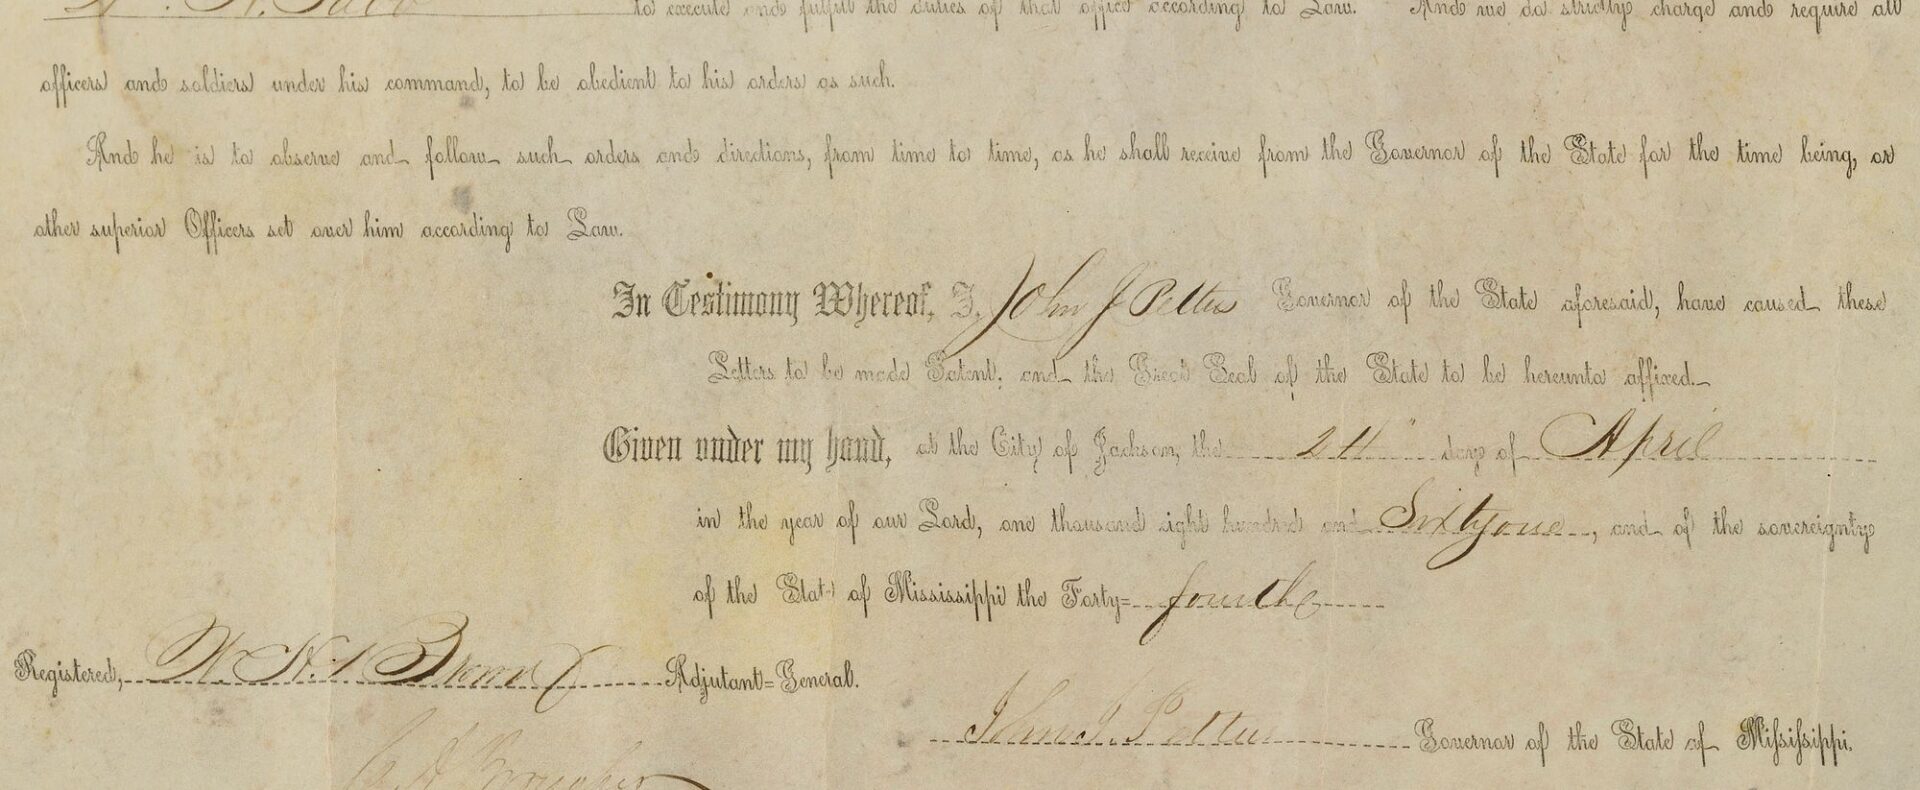 to execute and fulfill the duties of that office according to Law. And we do strictly charge and require all
officers and soldiers under his command, to be obedient to his orders as such.
And he is to observe and follow such orders and directions, from time to time, as he shall receive from the Governor of the State for the time being, or
other superior Officers set over him according to Law.
In Testimony Whereof, I, John J Pettus Governor of the State aforesaid, have caused these
Letters to be made Patent, and the Great Seal of the State to be hereunto affixed.
Given under my hand, at the City of Jackson, the 24" day of April
in the year of our Lord, one thousand eight hundred and Sixty one, and of the sovereignty
of the State of Mississippi the Forty=fourth
Registered, W. H. Brown Adjutant=General.
John J. Pettus Governor of the State of Mississippi.